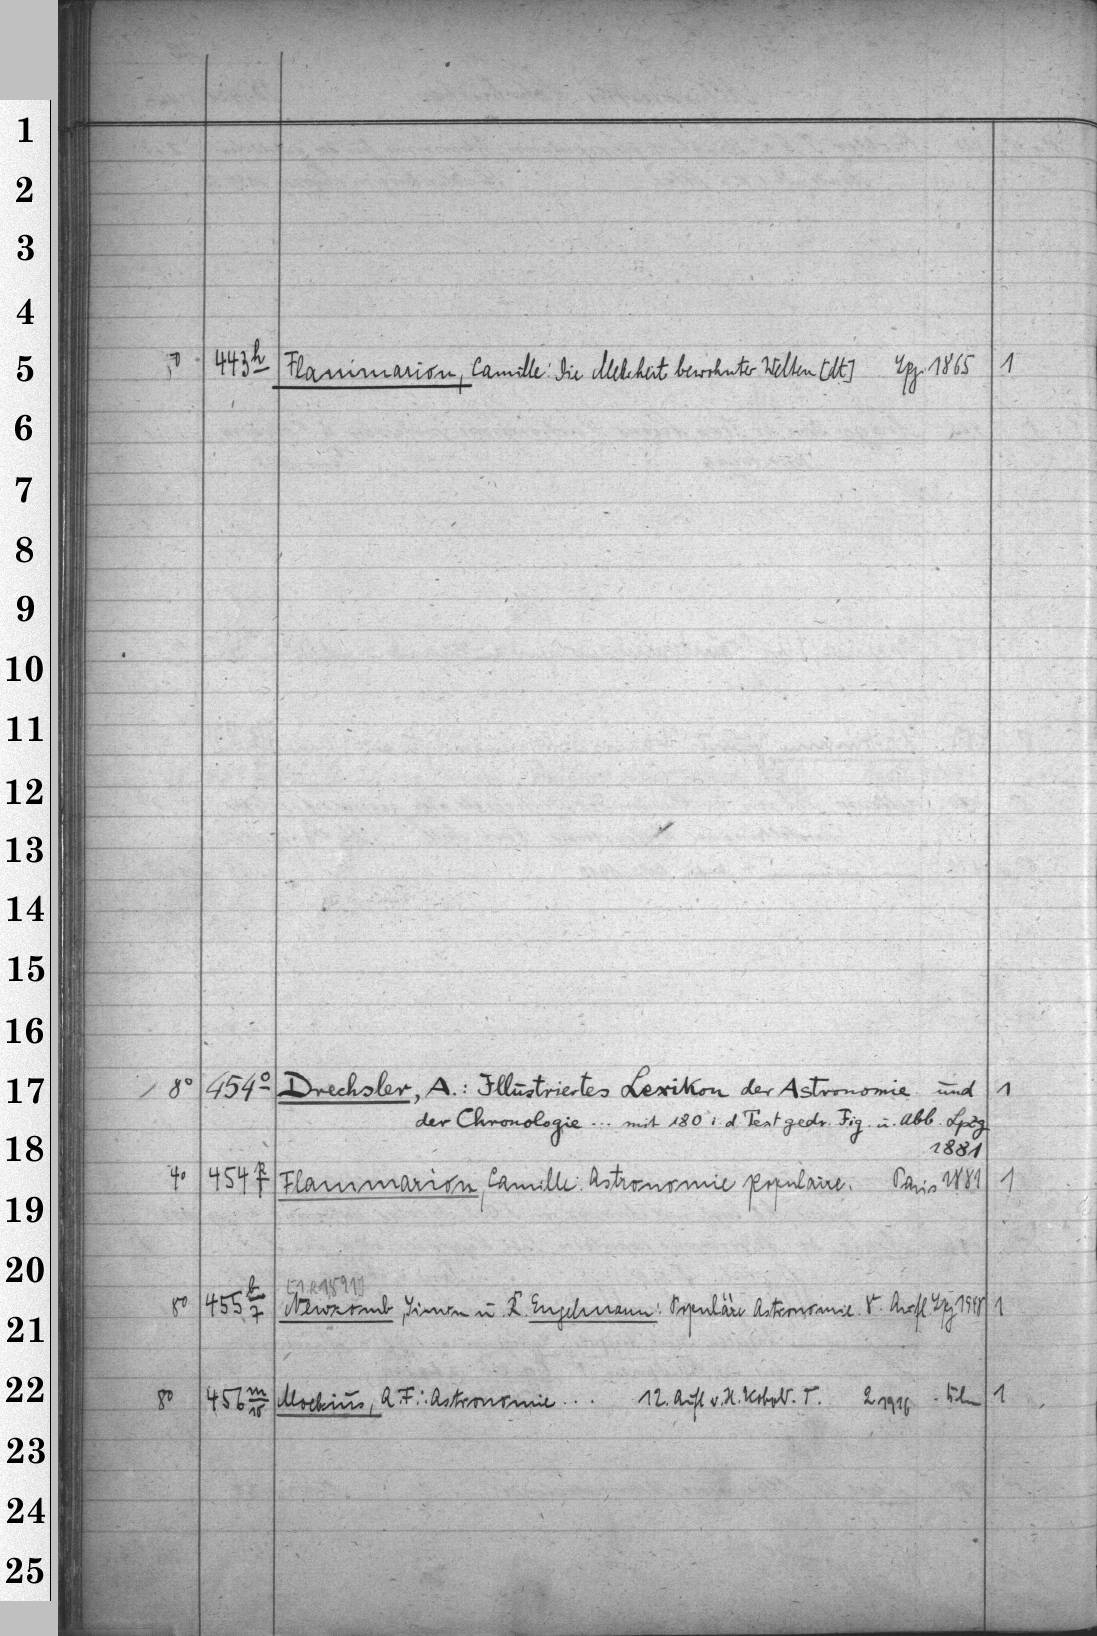 1
2
3
4
5
80 443h Flammarion, Camille: Die Mehrheit bewohnter Welten [dt] Lpz. 1865 1
6
7
8
9
10
11
12
13
14
15
16
17
8° 454o Drechsler, A.: Illustriertes Lexikon der Astronomie und 1
der Chronologie ... mit 180 i. d. Text gedr. Fig. u. Abb. Lpzg
18
1881
40 454p Flammarion, Camille: Astronomie populaire. Paris 1881 1
19
20
80 455 b/7 Newcomb, Simon u R Engelmann: Populäre Astronomie. 5. Aufl Lpz 1 1
21
22
80 456 m/18 Moebius, A F.: Astronomie ... 12. Aufl v. H. Kobold. T. 2 1916 1
23
24
25